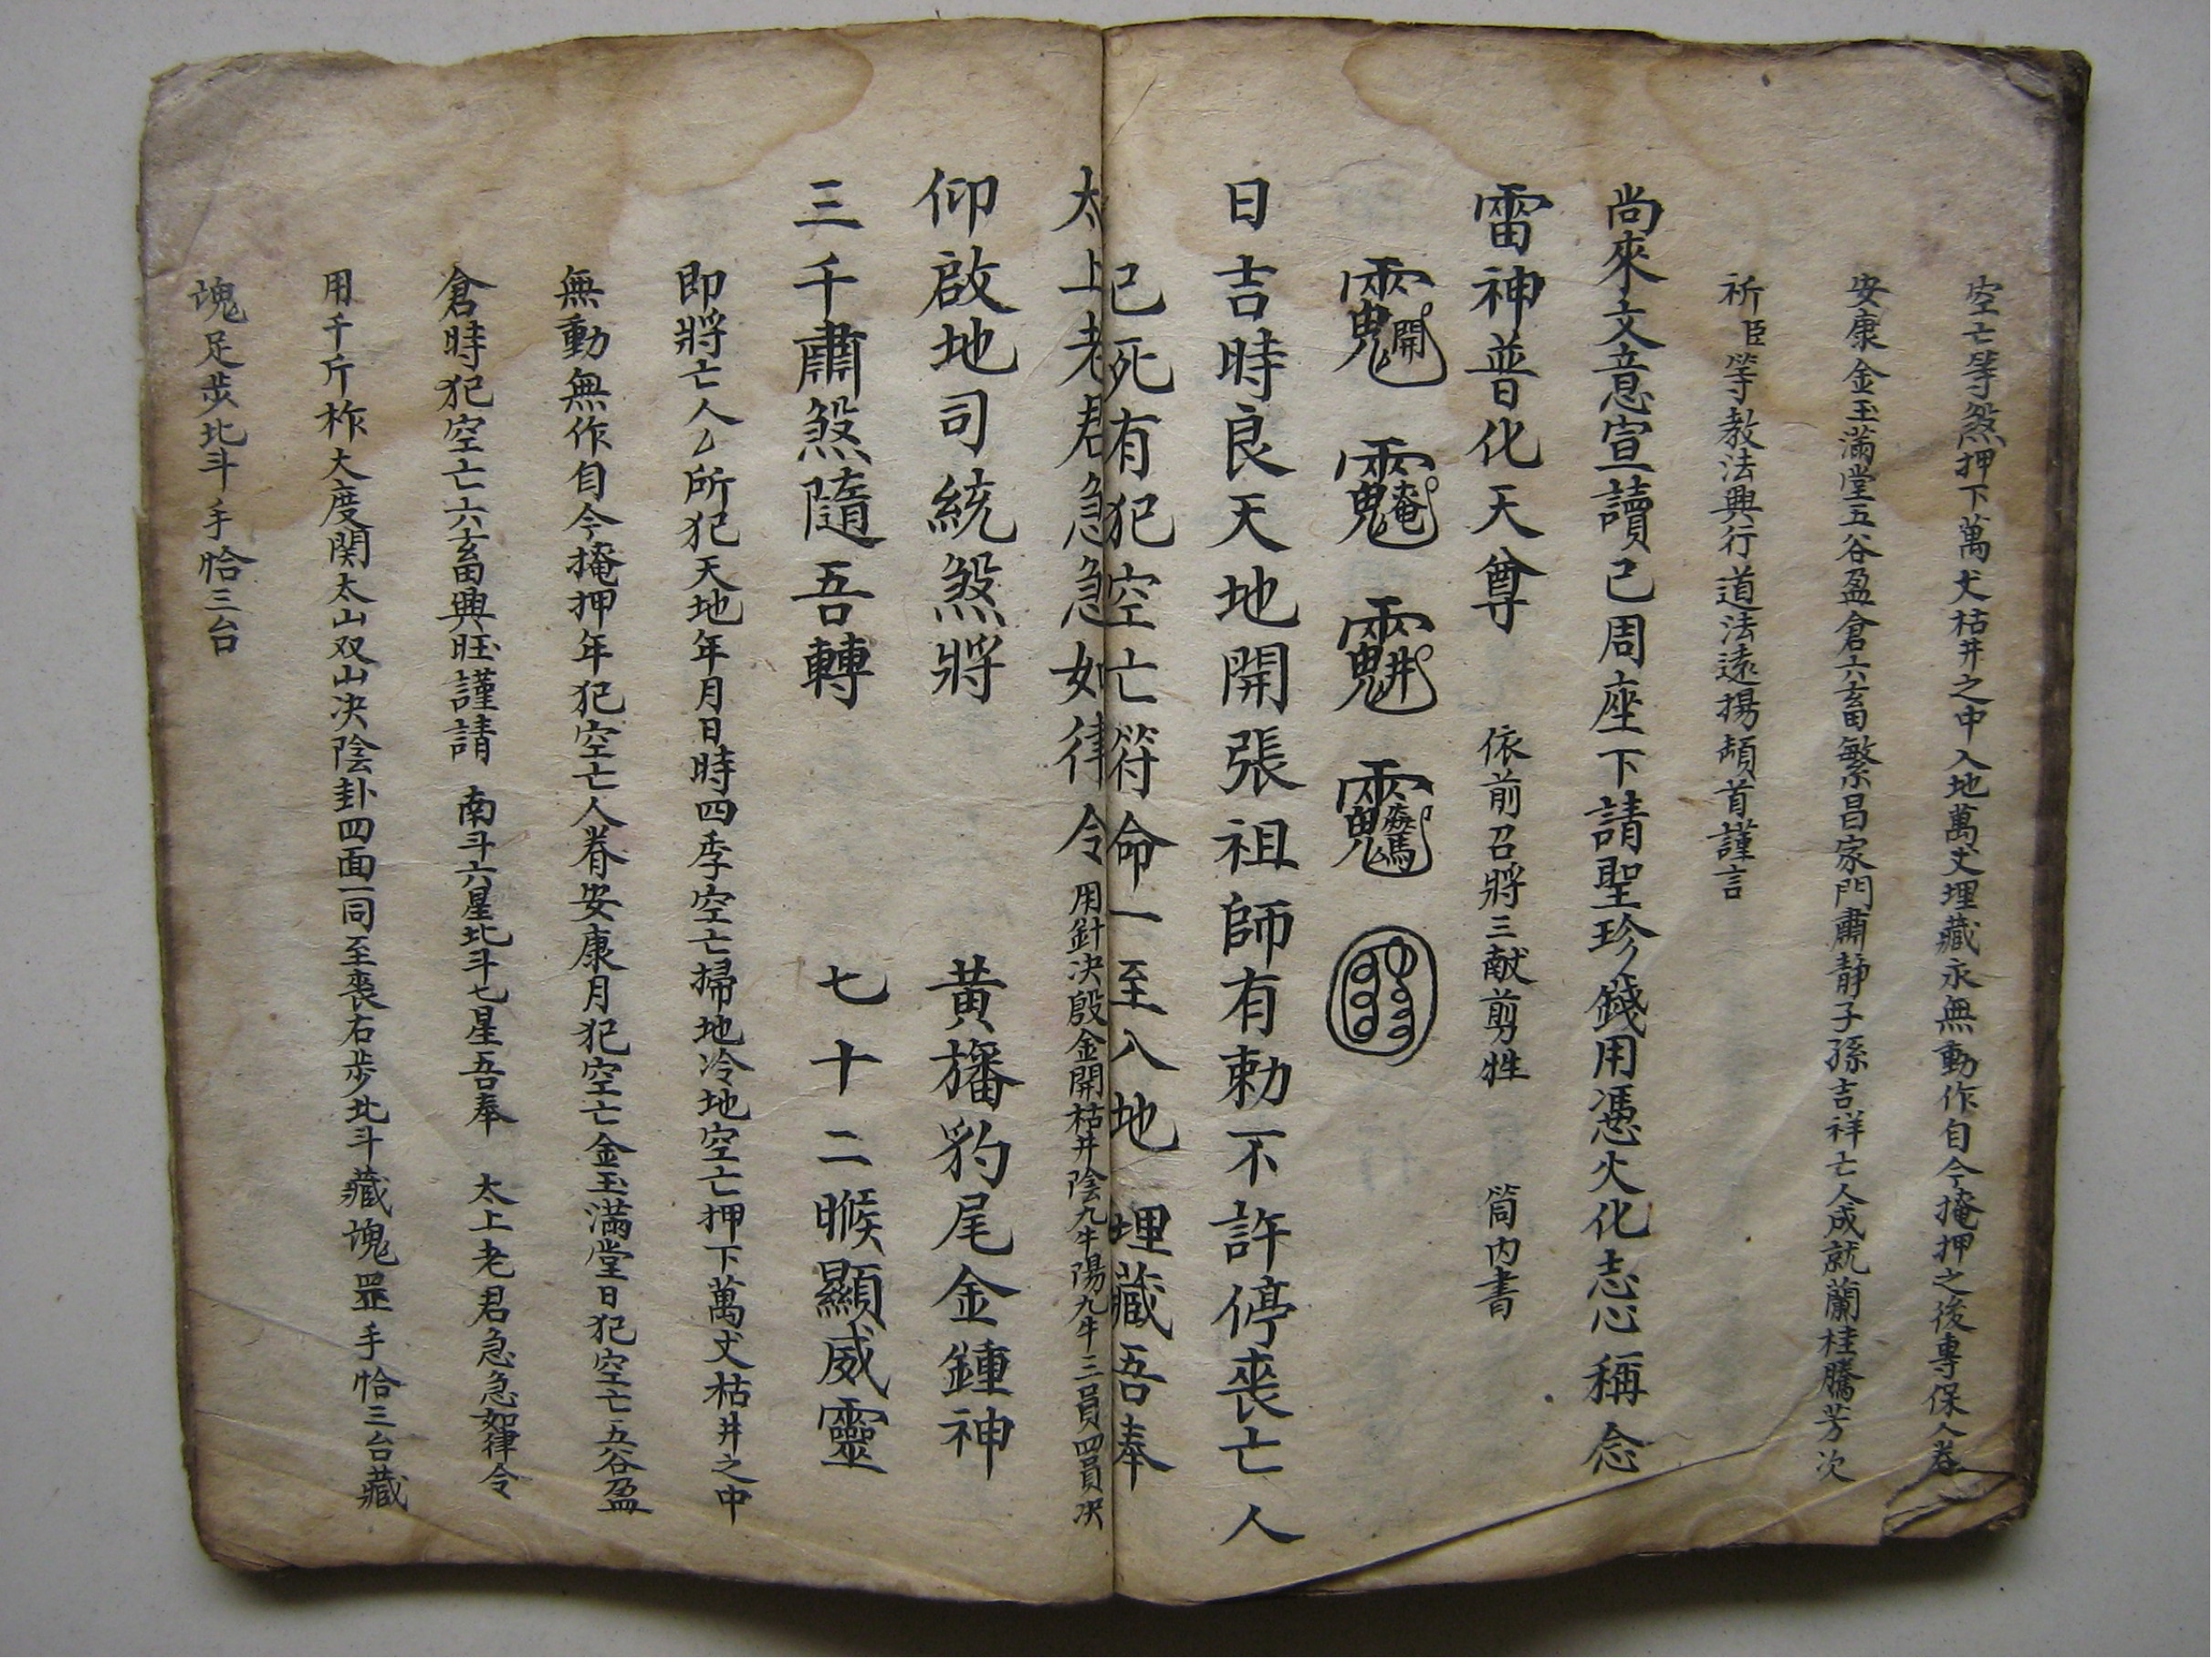 空亡等煞押下萬丈枯井之中入地萬丈埋藏永無動作自今掩押之後專保人眷
安康金玉滿堂五谷盈倉六畜繁昌家門肅静子孫吉祥亡人成就蘭桂騰芳次
祈臣等教法興行道法遠揚頓首謹言
尚來文意宣讀已周座下請聖珍錢用憑火化志心稱念
雷神普化天尊 依前召將三献剪牲 筒内書
日吉時良天地開張祖師有勅不許停喪亡人
已死有犯空亡符命一至入地埋藏吾奉
太上老君急急如律令 用針决殷金開枯井陰九牛陽九牛三員四員决
仰啟地司統煞將 黄旛豹尾金鍾神
三千肅煞隨吾轉 七十二睺顯威靈
即將亡人厶所犯天地年月日時四季空亡掃地冷地空亡押下萬丈枯井之中
無動無作自今掩押年犯空亡人眷安康月犯空亡金玉滿堂日犯空亡五谷盈
倉時犯空亡六畜興旺謹請 南斗六星北斗七星吾奉 太上老君急急如律令
用千斤柞大度関太山双山决陰卦四面一同至喪右步北斗藏塊罡手恰三台藏
塊足步北斗手恰三台